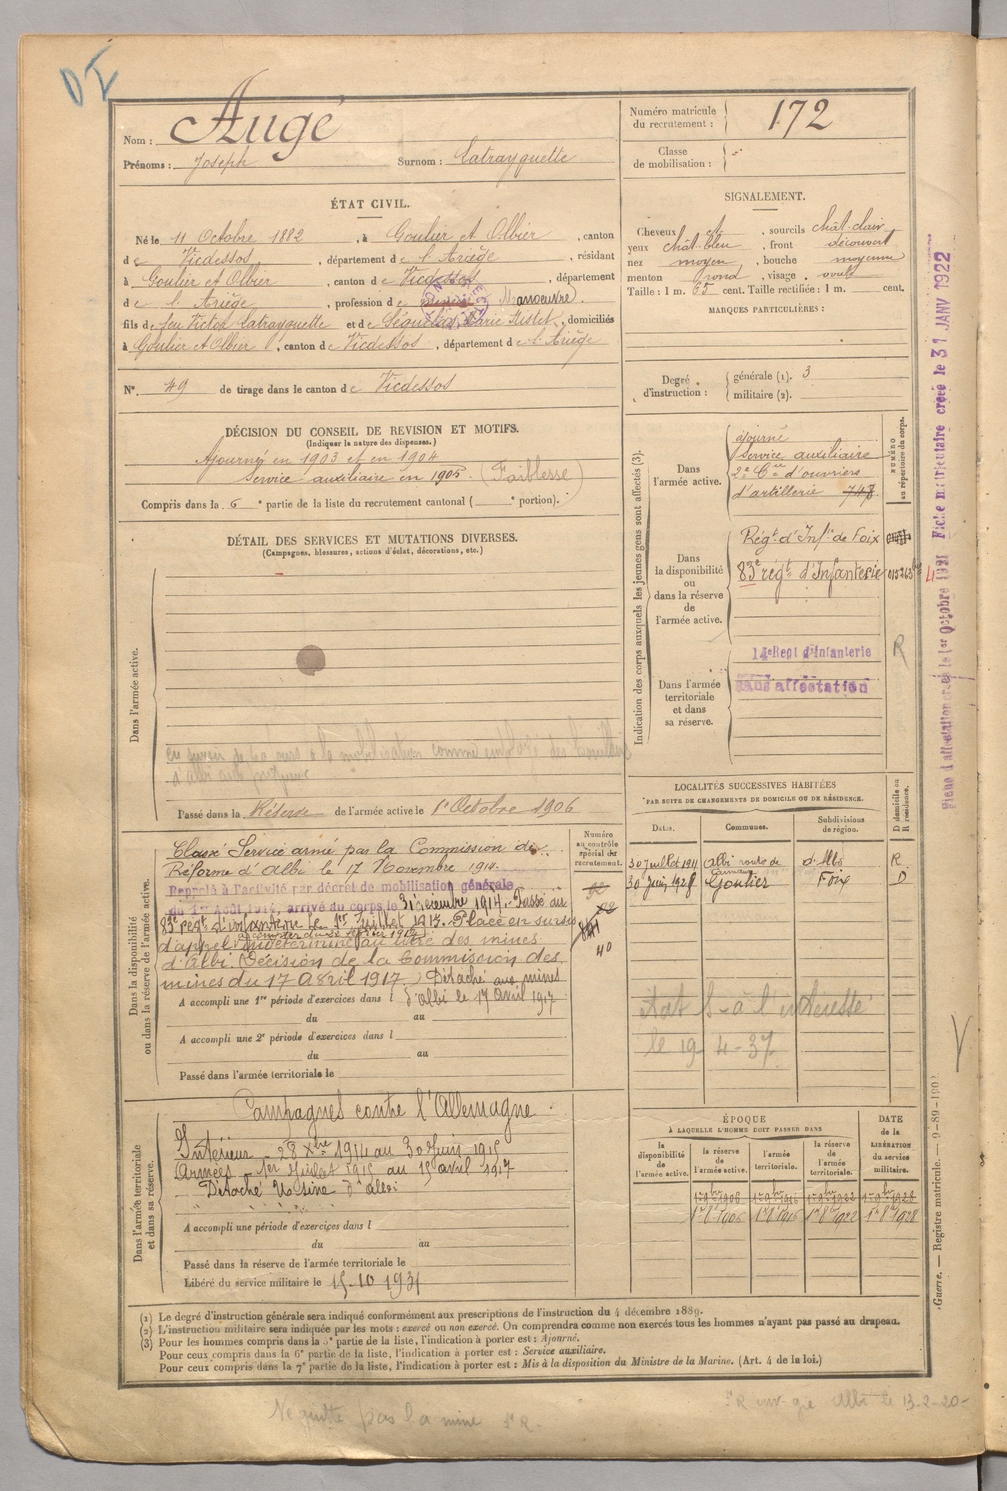 Nom : Augé
Prénoms : Joseph Surnom : Latrayguette
Numéro matricule du recrutement : 172
Classe de mobilisation :
ÉTAT CIVIL.
Né le 11 Octobre 1882, à Goulier et Olbier, canton
de Vicdessos, département de l'Ariège, résidant
à Goulier et Olbier, canton de Vicdessos, département
de l'Ariège, profession de Manoeuvre.
fils de feu Victor Latrayguette et de Marie, domiciliés
à Goulier et Olbier, canton de Vicdessos, département de l'Ariège
N° 49 de tirage dans le canton de Vicdessos
SIGNALEMENT.
Cheveux et, sourcils chât-clair
yeux chât-bleu, front découvert
nez moyen, bouche moyenne
menton rond, visage ovale
Taille : 1 m. 65 cent. Taille rectifiée : 1 m. cent.
MARQUES PARTICULIÈRES :
Degré d'instruction : générale (1). 3
militaire (2).
DÉCISION DU CONSEIL DE REVISION ET MOTIFS.
(Indiquer la nature des dispenses.)
Ajourné en 1903 et en 1904
Service auxiliaire en 1905 (Faiblesse)
Compris dans la 6e partie de la liste du recrutement cantonal ( e portion).
DÉTAIL DES SERVICES ET MUTATIONS DIVERSES.
(Campagnes, blessures, actions d'éclat, décorations, etc.)
Dans l'armée active.
à la mobilisation comme employé des
Passé dans la Réserve de l'armée active le 1er Octobre 1906
Indication des corps auxquels les jeunes gens sont affectés (3).
NUMÉRO au répertoire du corps.
Dans l'armée active.
ajourné
Service auxiliaire
2e Cie d'ouvriers
d'artillerie 747
Dans la disponibilité ou dans la réserve de l'armée active.
Régt d'Infie de Foix
83e régt d'Infanterie
Dans l'armée territoriale et dans sa réserve.
14e Regt d'Infanterie
sans affectation
R
Dans la disponibilité ou dans la réserve de l'armée active.
Classé Service armé par la Commission de
Réforme d'Albi le 17 Novembre 1914.
Rappelé à l'activité par décret de mobilisation générale
du 1er Août 1914, arrivé au corps le 3 décembre 1914. Passé au
83e régt d'infanterie le 1er Juillet 1915. Placé en sursis
d'appel indéterminé au titre des mines
d'Albi. Décision de la Commission des
mines du 17 Avril 1917. Détaché aux mines
d'Albi le 17 avril 1917
A accompli une 1re période d'exercices dans l
du au
A accompli une 2e période d'exercices dans l
du au
Passé dans l'armée territoriale le
Numéro au contrôle spécial du recrutement.
40
LOCALITÉS SUCCESSIVES HABITÉES
PAR SUITE DE CHANGEMENTS DE DOMICILE OU DE RÉSIDENCE.
Dates. Communes. Subdivisions de région. D domicile ou R résidence.
30 juillet 1911 Albi route de Carmaux d'Albi R
30 Juin 1928 Goulier Foix D
à l'intéressé
le 19 4-37
Dans l'armée territoriale et dans sa réserve.
Campagnes contre l'Allemagne
Intérieur - 28 Xbre 1914 au 30 Juin 1915
Armées - 1er Juillet 1915 au 15 avril 1917
Détaché Usine d'Albi
A accompli une période d'exercices dans l
du au
Passé dans la réserve de l'armée territoriale le
Libéré du service militaire le 15-10 1931
ÉPOQUE
À LAQUELLE L'HOMME DOIT PASSER DANS
la disponibilité de l'armée active. la réserve de l'armée active. l'armée territoriale. la réserve de l'armée territoriale. DATE de la LIBÉRATION du service militaire.
1er 9bre 1906 1er 9bre 1916 1er 9bre 1922 1er 9bre 1928
1er 8bre 1906 1er 8bre 1916 1er 8bre 1922 1er 8bre 1928
(1) Le degré d'instruction générale sera indiqué conformément aux prescriptions de l'instruction du 4 décembre 1889.
(2) L'instruction militaire sera indiquée par les mots : exercé ou non exercé. On comprendra comme non exercés tous les hommes n'ayant pas passé au drapeau.
(3) Pour les hommes compris dans la 5e partie de la liste, l'indication à porter est : Ajourné.
Pour ceux compris dans la 6e partie de la liste, l'indication à porter est : Service auxiliaire.
Pour ceux compris dans la 7e partie de la liste, l'indication à porter est : Mis à la disposition du Ministre de la Marine. (Art. 4 de la loi.)
Ne quitte pas la mine
Albi le 13-2-20
Fiche matriculaire créée le 31 JANV 1922
1er Octobre 1921
Guerre. — Registre matricule. — 9-89-1902.